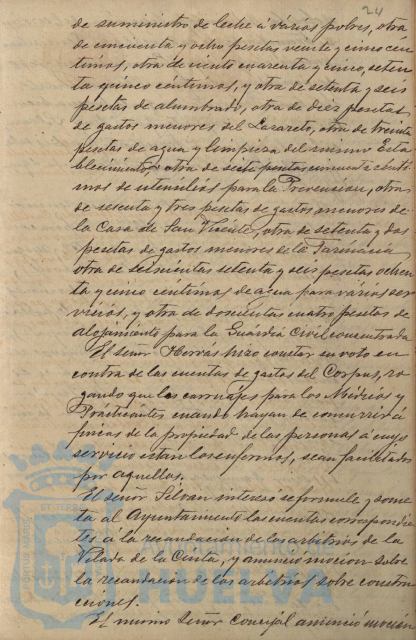 24
de suministro de leche á varios pobres, otra
de cincuenta y ocho pesetas veinte y cinco cen
timos, otra de ciento cuarenta y cinco, seten
ta y cinco céntimos, y otra de setenta y seis
pesetas de alumbrado, otra de diez pesetas
de gastos menores del Lazareto, otra de treinta
pesetas de agua y limpieza del mismo Esta
blecimiento, otra de siete pesetas cincuenta cénti
mos de utensilios para la Prevención, otra
de sesenta y tres pesetas de gastos menores de
la Casa de San Vicente, otra de setenta y dos
pesetas de gastos menores de la Farmacia,
otra de seiscientas setenta y seis pesetas ochen
ta y cinco centimos de agua para varios ser
vicios, y otra de doscientas cuatro pesetas de
alojamiento para la Guardia Civil concentrada
El señor Horrás hizo constar su voto en
contra de las cuentas de gastos del Corpus, ro
gando que los carruajes para los Médicos y
Practicantes cuando hayan de concurrir á
fincas de la propiedad de las personas á cuyo
servicio están los enfermos, sean facilitados
por aquellas.
El señor Silvan intereso se formule y some
ta al Ayuntamiento las cuentas correspondien
tes á la recaudación de los arbitrios de la
Velada de la Cinta, y anunció mocion sobre
la recaudación de los arbitrios sobre construc
ciones.
El mismo Señor Concejal anunció mocion
HUELVA